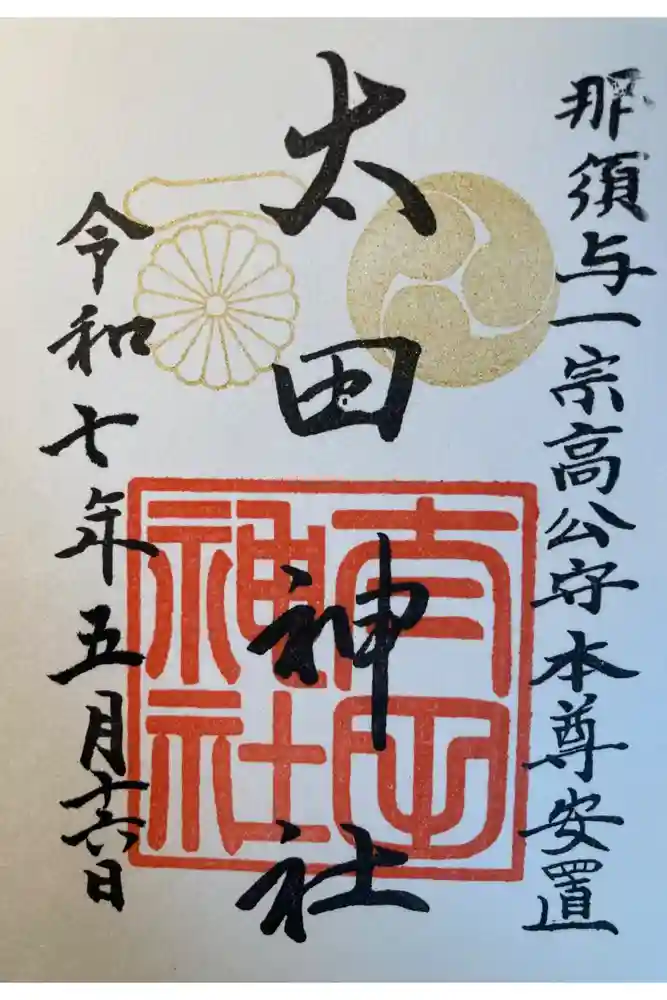 那須与一宗高公守本尊安置
太田神社
太田神社
令和七年五月十六日